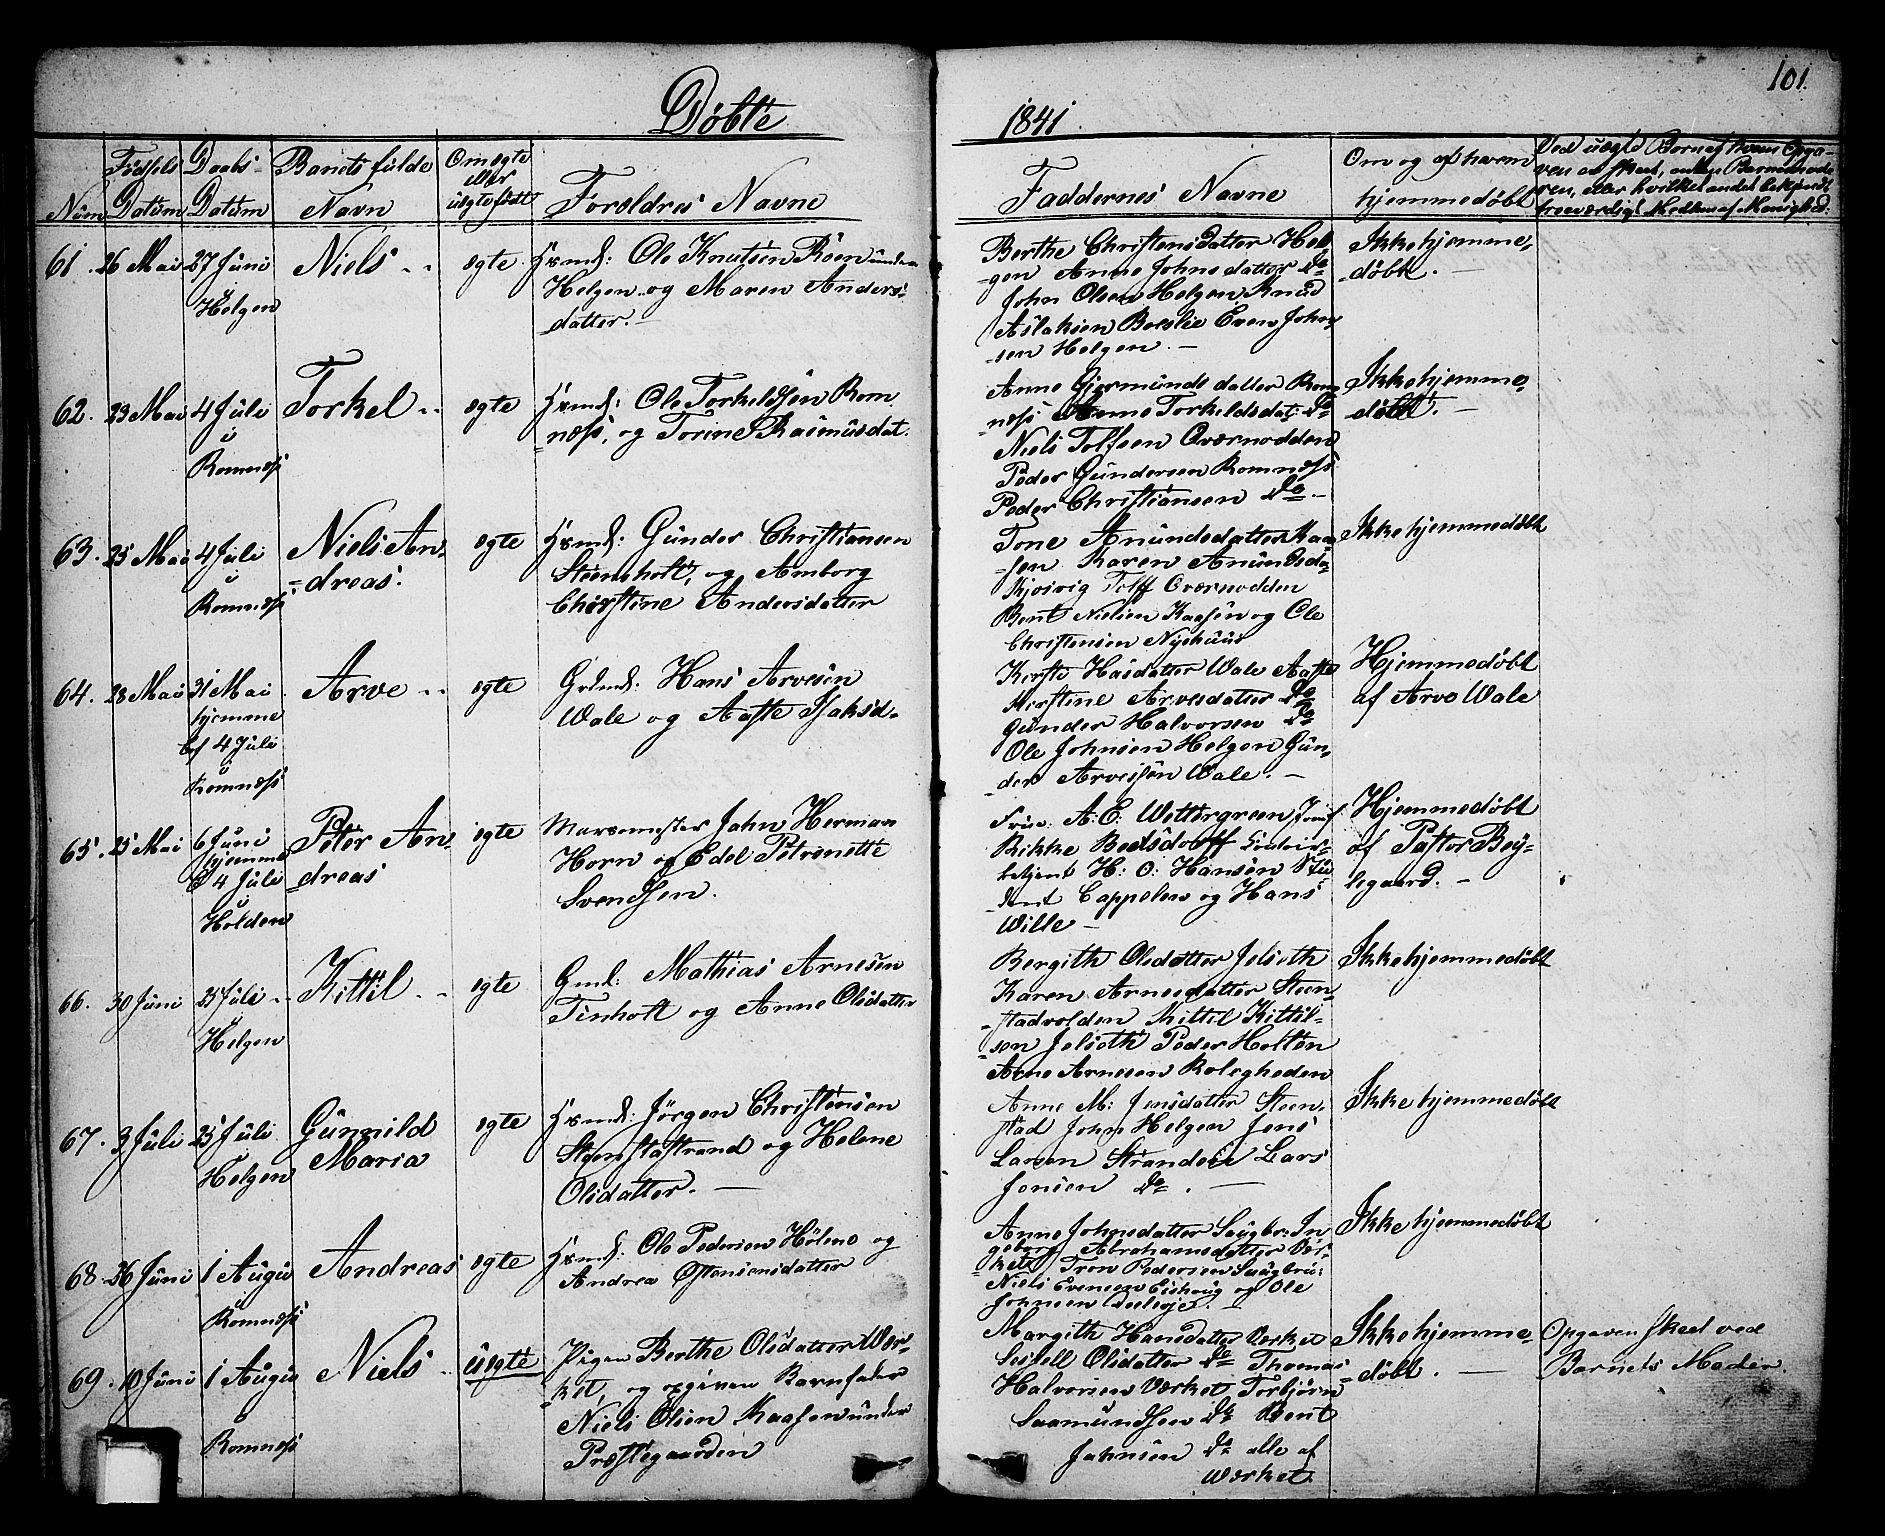 Döbte
1841
101.
Num
Födsels Datum
Daabs Datum
Barnets fulde Navn
Om ægte eller uægte født
Forældres Navne
Faddernes Navne
Om og af hvem hjemmedöbt
Ved uægte Børn af hvem Opgaven
61.
26 Mai
27 Juni
i
Helgen
Niels
ægte
Hsmd: Ole Knutsen Roen under
Helgen og Maren Anders-
datter.
Berthe Christensdatter Hel-
gen Anne Johnsdatter do
John Olsen Helgen Knud
Aslaksen Boeslie Even John-
sen Helgen
Ikke hjemme-
döbt.
62.
23 Mai
4 Juli
i
Romnæss
Torkel
ægte
Hsmd: Ole Torkildsen Rom
næss, og Torine Rasmusdat.
Anne Gjermunds datter Rom
næss Anne Torkildsdat: do
Niels Tolfsen Oværnodden
Peder Gundersen Romnæss
Peder Christiansen do
Ikke hjemme-
döbt.
63.
25 Mai
4 Juli
i
Romnæss
Niels An-
dreas.
ægte
Hsmd: Gunder Christiansen
Steensholt, og Amborg
Christine Andersdatter
Tone Anundsdatter Kaa-
sen Karen Anundsda-
Kjosvig Tolff Oværnodden
Bent Nielsen Kaasen og Ole
Christensen Nyehuus
Ikke hjemmedöbt
64.
28 Mai
31 Mai
hjemme
bf 4 Juli
i
Romnæss
Arve
ægte
Grdmd: Hans Arvesen
Wale og Aaste Isaksd-
Kirste Hasdatter Wale Aaste
Kirstine Arvesdatter do
Gunder Halvorsen do
Ole Johnsen Helgen Gun-
der Arvessön Wale.
Hjemmedöbt
af Arve Wale
65.
25 Mai
6 Juni
hjemme
4 Juli
i
Holden
Peter An-
dreas
ægte
Marsmester John Herman
Horn og Edel Petronette
Svendsen.
Frue A: C: Wettergreen Jomf
Rikke Bedsdorff
H: O: Hansen Stu-
dent Cappelen og Hans
Wille
Hjemmedöbt
af Pastor Bey-
legaard.
66.
30 Juni
25 Juli
i
Helgen
Kittil
ægte
Gmd: Mathias Arnesen
Tinholt og Anne Olsdatter
Bergith Olsdatter Jelseth
Karen Arnesdatter Steen-
stadvolden Kittil Kittil-
sen Jelseth Peder Holten
Arne Arnesen Bolegheden
Ikke hjemmedöbt
67.
3 Juli
25 Juli
i
Helgen
Gunnild
Maria
ægte
Hsmd: Jörgen Christensen
Steenstastrand og Helene
Olsdatter.
Anne M: Jensdatter Steen-
stad John Helgen Jens
Larsen Strandeie Lars
Jensen do.
Ikke hjemmedöbt
68.
26 Juni
1 Augu
i
Romnæss
Andreas
ægte
Hsmd: Ole Pedersen Holme og
Andrea Östensensdatter
Anne Johnsdatter Saugbr: In
geborg Abrahamsdatter Vær-
ket Tron Pedersen Saugbru:
Niels Evensen Eishoug og Ole
Johnsen
Ikke hjemmedöbt
69.
10 Juni
1 Augu
i
Romnæss
Niels
uægte
Pigen Berthe Olsdatter Vær-
ket, og opgiven Barnfader
Niels Olsen Kaasen under
Præstegaarden
Margith Hansdatter Værket
Sessell Olsdatter do Thomas
Halvorsen Værket Torbjörn
Saamundsen do Bent
Jahnsen do alle af
Værket.
Ikke hjemme-
döbt.
Opgaven skeet ved
Barnets Moder